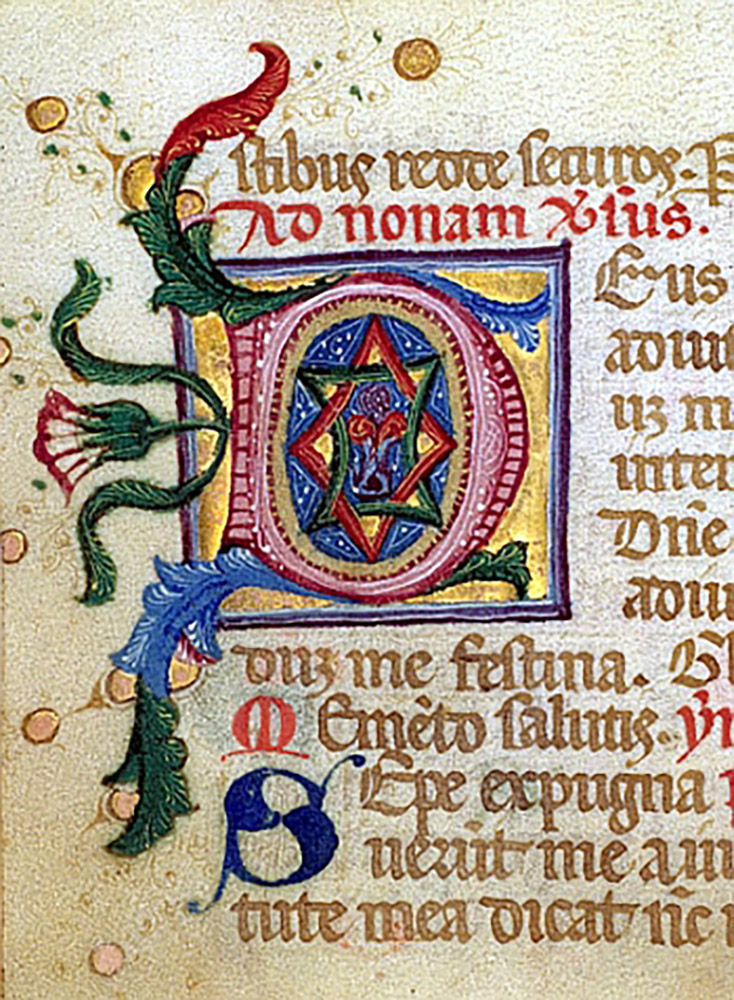 stibus redde securos. P
Ad nonam versus.
Deus
adiut
uz m
inten
Dn̄e
adiu
duz me festina. Gl
Memēto salutis. yn
Sepe expugna
uerūt me a iu
tute mea dicat nc̄